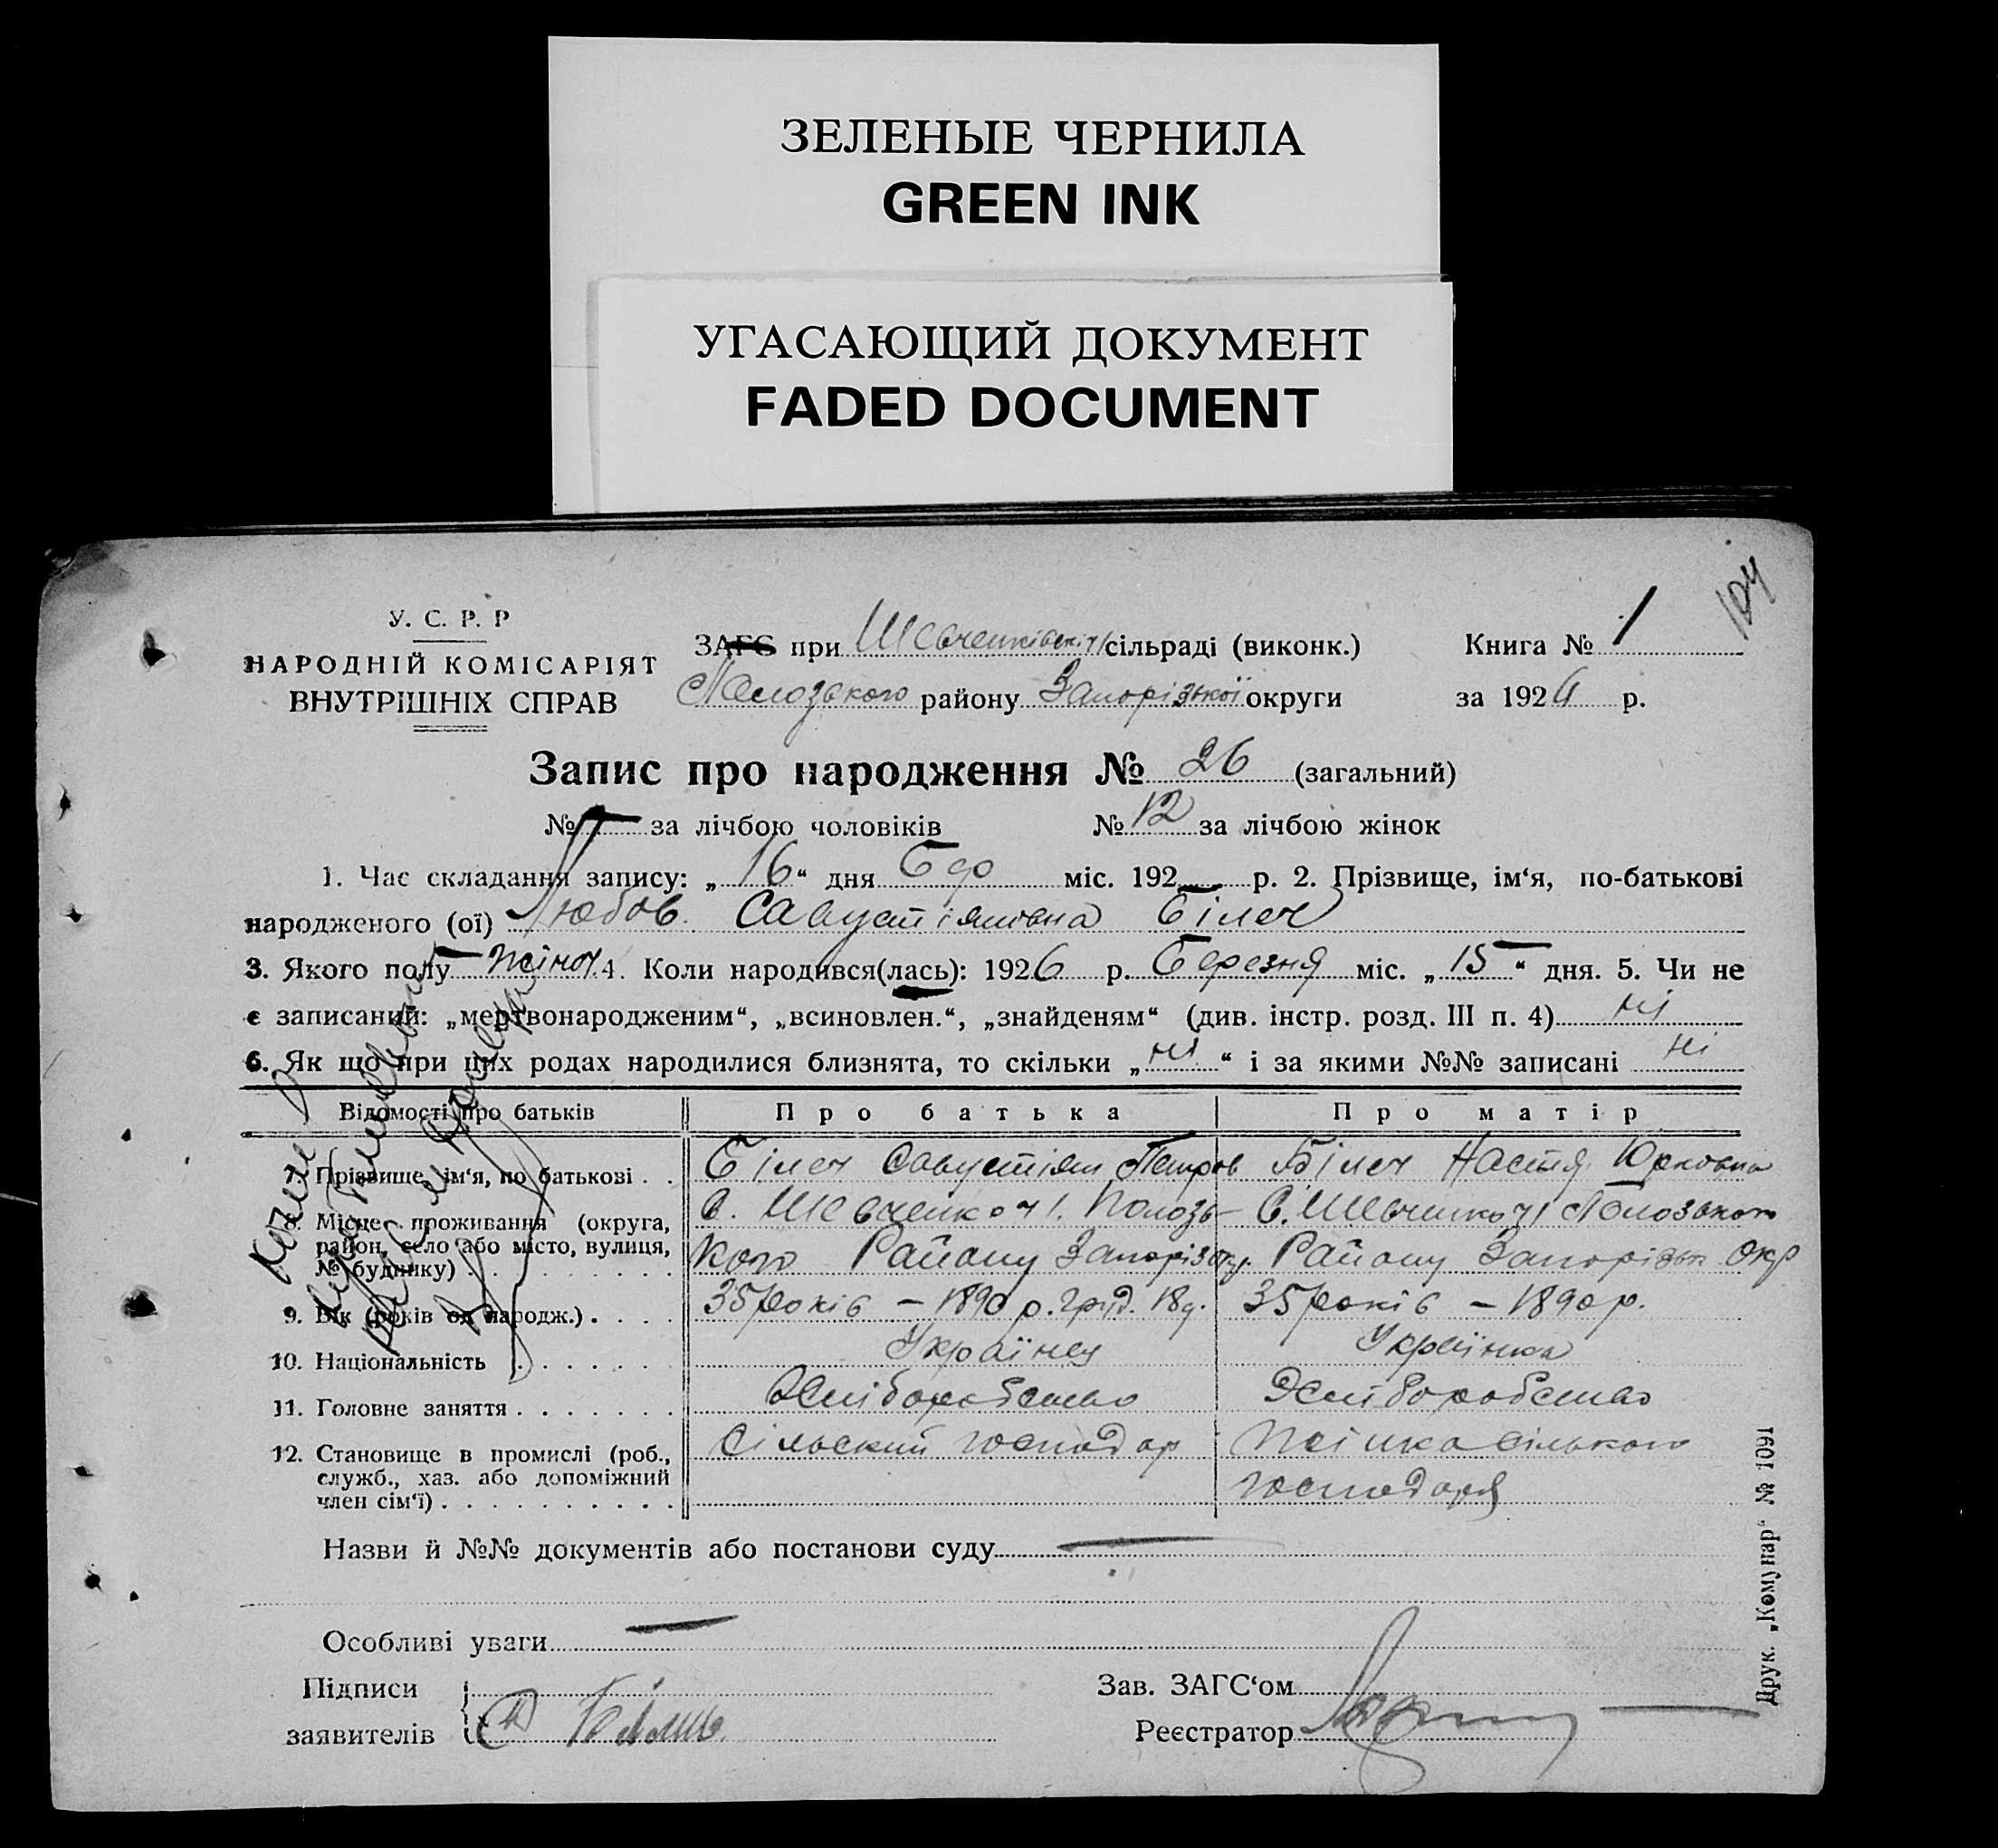 ЗЕЛЕНЫЕ ЧЕРНИЛА
GREEN INK
УГАСАЮЩИЙ ДОКУМЕНТ
FADED DOCUMENT
104
У. С. Р. Р
НАРОДНІЙ КОМІСАРІЯТ
ВНУТРІШНІХ СПРАВ
ЗАГС при Шевченківській сільраді (виконк.)
Пологзького району Запорізької округи
Книга № 1
за 1926 р.
Запис про народження № 26 (загальний)
№ за лічбою чоловіків № 12 за лічбою жінок
1. Час складання запису: „16“ дня міс. 192 р. 2. Прізвище, ім‘я, по-батькові
народженого (ої) Любов Савустіяновна Білеч
3. Якого полу жіноч. 4. Коли народився(лась): 1926 р. Березня міс. „15“ дня. 5. Чи не
є записаний: „мертвонародженим“, „всиновлен.“, „знайденям“ (див. інстр. розд. III п. 4) ні
6. Як що при цих родах народилися близнята, то скільки „ні“ і за якими №№ записані ні
Відомості про батьків Про батька Про матір
7. Прізвище, ім‘я, по батькові . . Білеч Савустіян Петров Білеч Настя Юрковна
8. Місце проживання (округа, район, село або місто, вулиця, № будинку) С. Шевченко Полозь- С. Шевченко Полозького
кого Району Запоріз окр. Району Запорізьк Окр
9. Вік (років од народж.) . . . . 35 років — 1890 р. груд. 18 д. 35 років — 1890 р.
10. Національність . . . . . . Українец Українка
11. Головне заняття . . . . . . . Хліборобство Хлиборобство
12. Становище в промислі (роб., служб., хаз. або допоміжний член сім‘ї) . . . . . . . . . . Сільский господар Жінка сільького
господаря
Назви й №№ документів або постанови суду —
Особливі уваги —
Підписи
заявителів
Зав. ЗАГС‘ом
Реєстратор
Друк. „Комунар“ № 1091